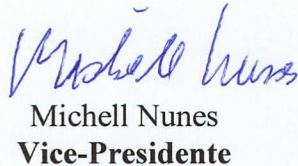 Michell Nunes
Michell Nunes
Vice-Presidente